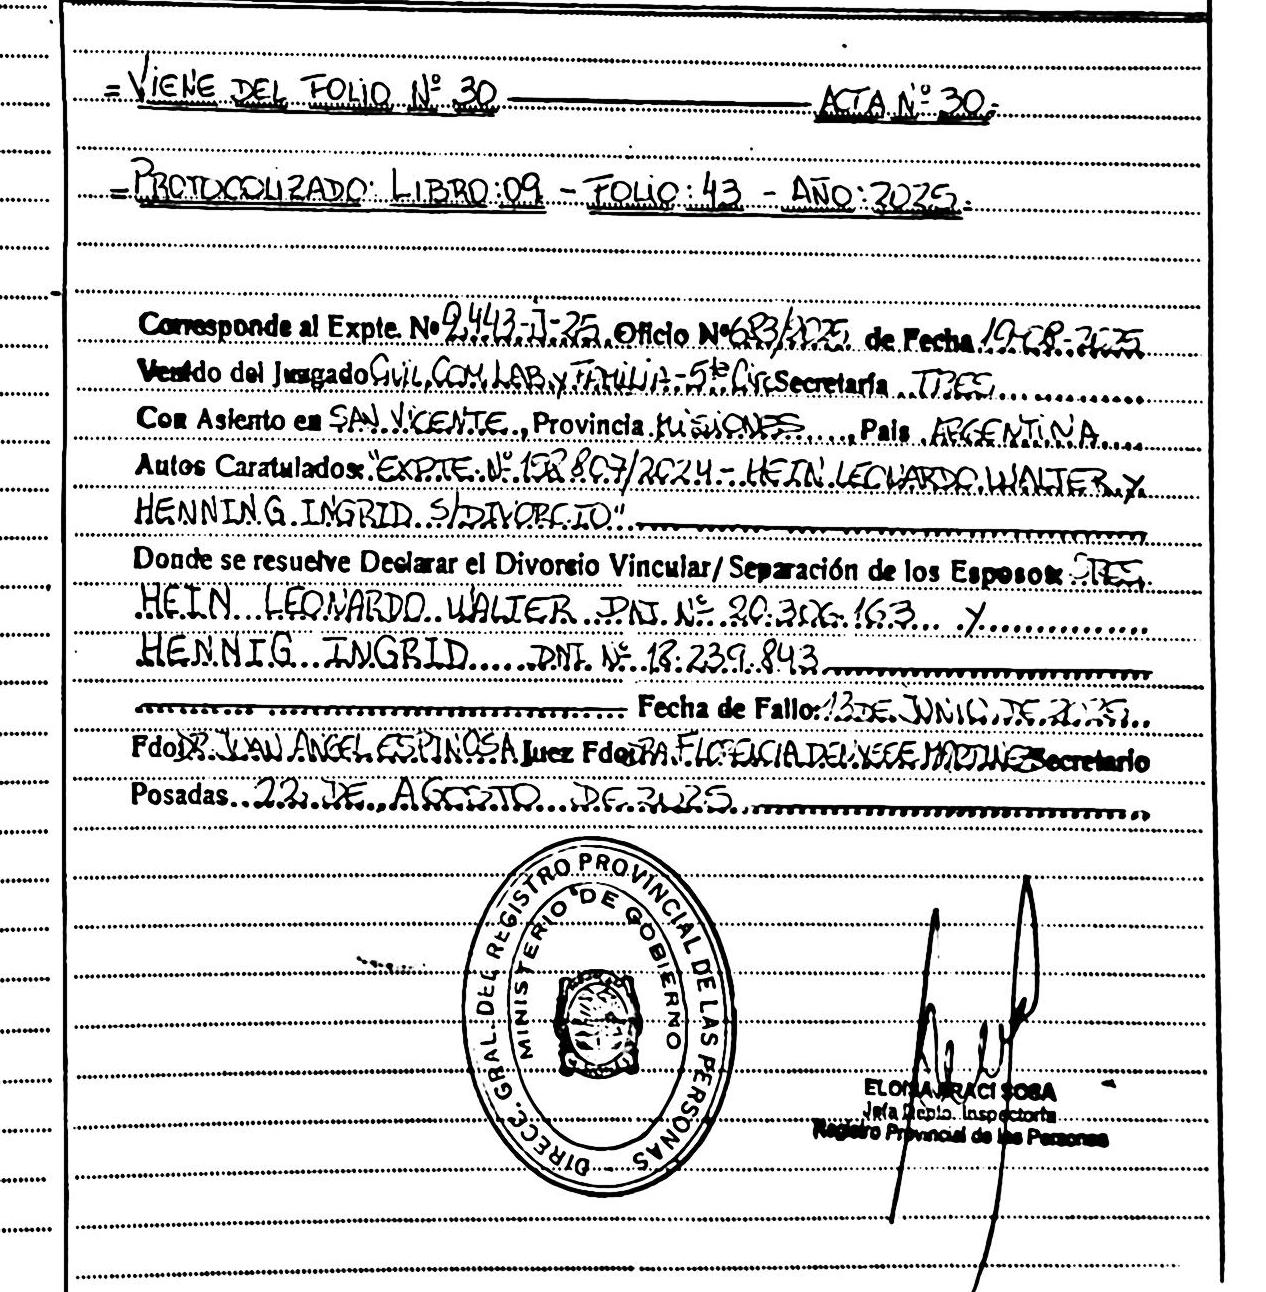 =VIENE DEL FOLIO Nº 30 ACTA Nº 30.-
=PROTOCOLIZADO: LIBRO:09 - FOLIO:43 - AÑO:2025.-
Corresponde al Expte. Nº 2.443-J-25, Oficio Nº 683/2025 de Fecha 19-08-2025
Venido del Juzgado CIVIL, COM, LAB, y FAMILIA-5ta Circ Secretaría TRES
Con Asiento en SAN VICENTE, Provincia MISIONES, Pais ARGENTINA
Autos Caratulados: "EXPTE. Nº 807/2024 - HEIN LEONARDO WALTER y
HENNING INGRID S/DIVORCIO"
Donde se resuelve Declarar el Divorcio Vincular/ Separación de los Esposos: STES.
HEIN LEONARDO WALTER DNI. Nº 20.306.163 Y
HENNIG INGRID DNI. Nº 18.239.843
Fecha de Fallo: 13 DE JUNIO DE 2025
Fdo: DR. JUAN ANGEL ESPINOSA Juez Fdo: DRA. MARTINEZ Secretario
Posadas 22 DE AGOSTO DE 2025
DIRECC. GRAL. DEL REGISTRO PROVINCIAL DE LAS PERSONAS -
MINISTERIO DE GOBIERNO
SOSA
Jefa Depto. Inspectoría
Registro Provincial de las Personas